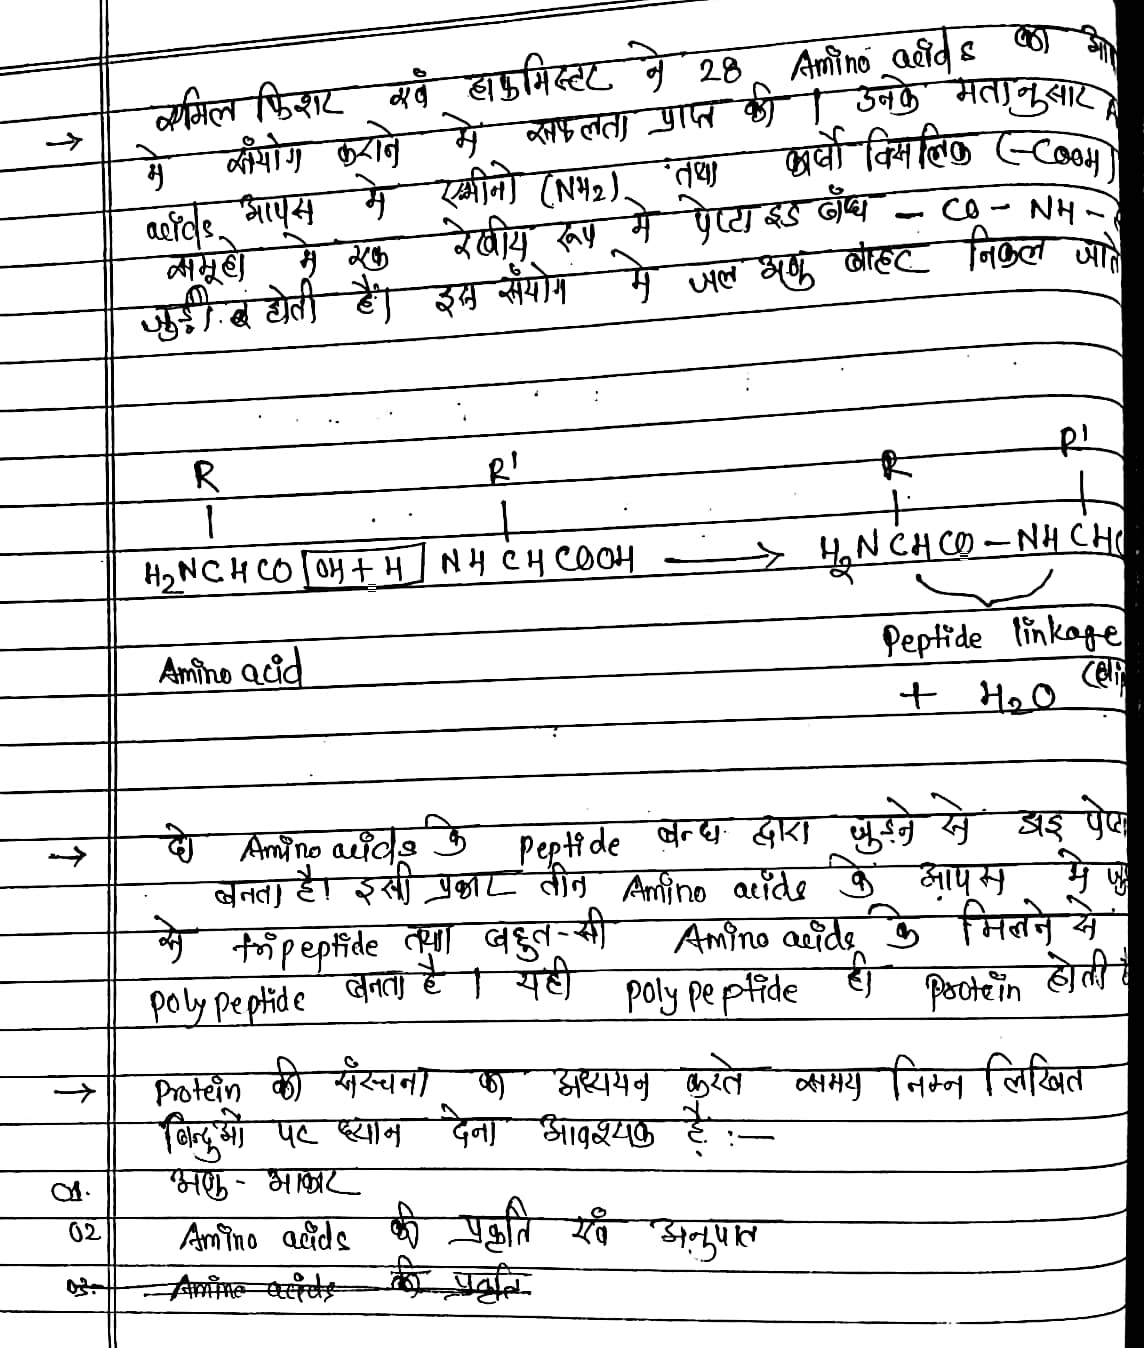 → एमिल फिशर एवं हाफमिस्टर ने 28 Amino acids का
में संयोग कराने में सफलता प्राप्त की। उनके मतानुसार A
acids आपस में एमीनो (NH2) तथा कार्बोक्सिलिक (-COOH)
समूहों में एक रेखीय रूप में पेप्टाइड बँध - CO - NH -
जुड़ी होती हैं। इस संयोग में जल अणु बाहर निकल जाते
R R' R R'
| | | |
H2NCHCO [OH + H] NHCHCOOH ⟶ H2NCHCO - NHCHC
Amino acid
Peptide linkage
+ H2O
→ दो Amino acids कि peptide बन्ध द्वारा जुड़ने से डाइ
बनता है। इसी प्रकार तीन Amino acids कि आपस में
से tripeptide तथा बहुत-सी Amino acids कि मिलने से
polypeptide बनता है। यही polypeptide ही protein होती
→ Protein की संरचना का अध्ययन करते समय निम्न लिखित
बिन्दुओं पर ध्यान देना आवश्यक है :—
01. अणु - आकार
02 Amino acids की प्रकृति एवं अनुपात
03. Amino acids की प्रकृति